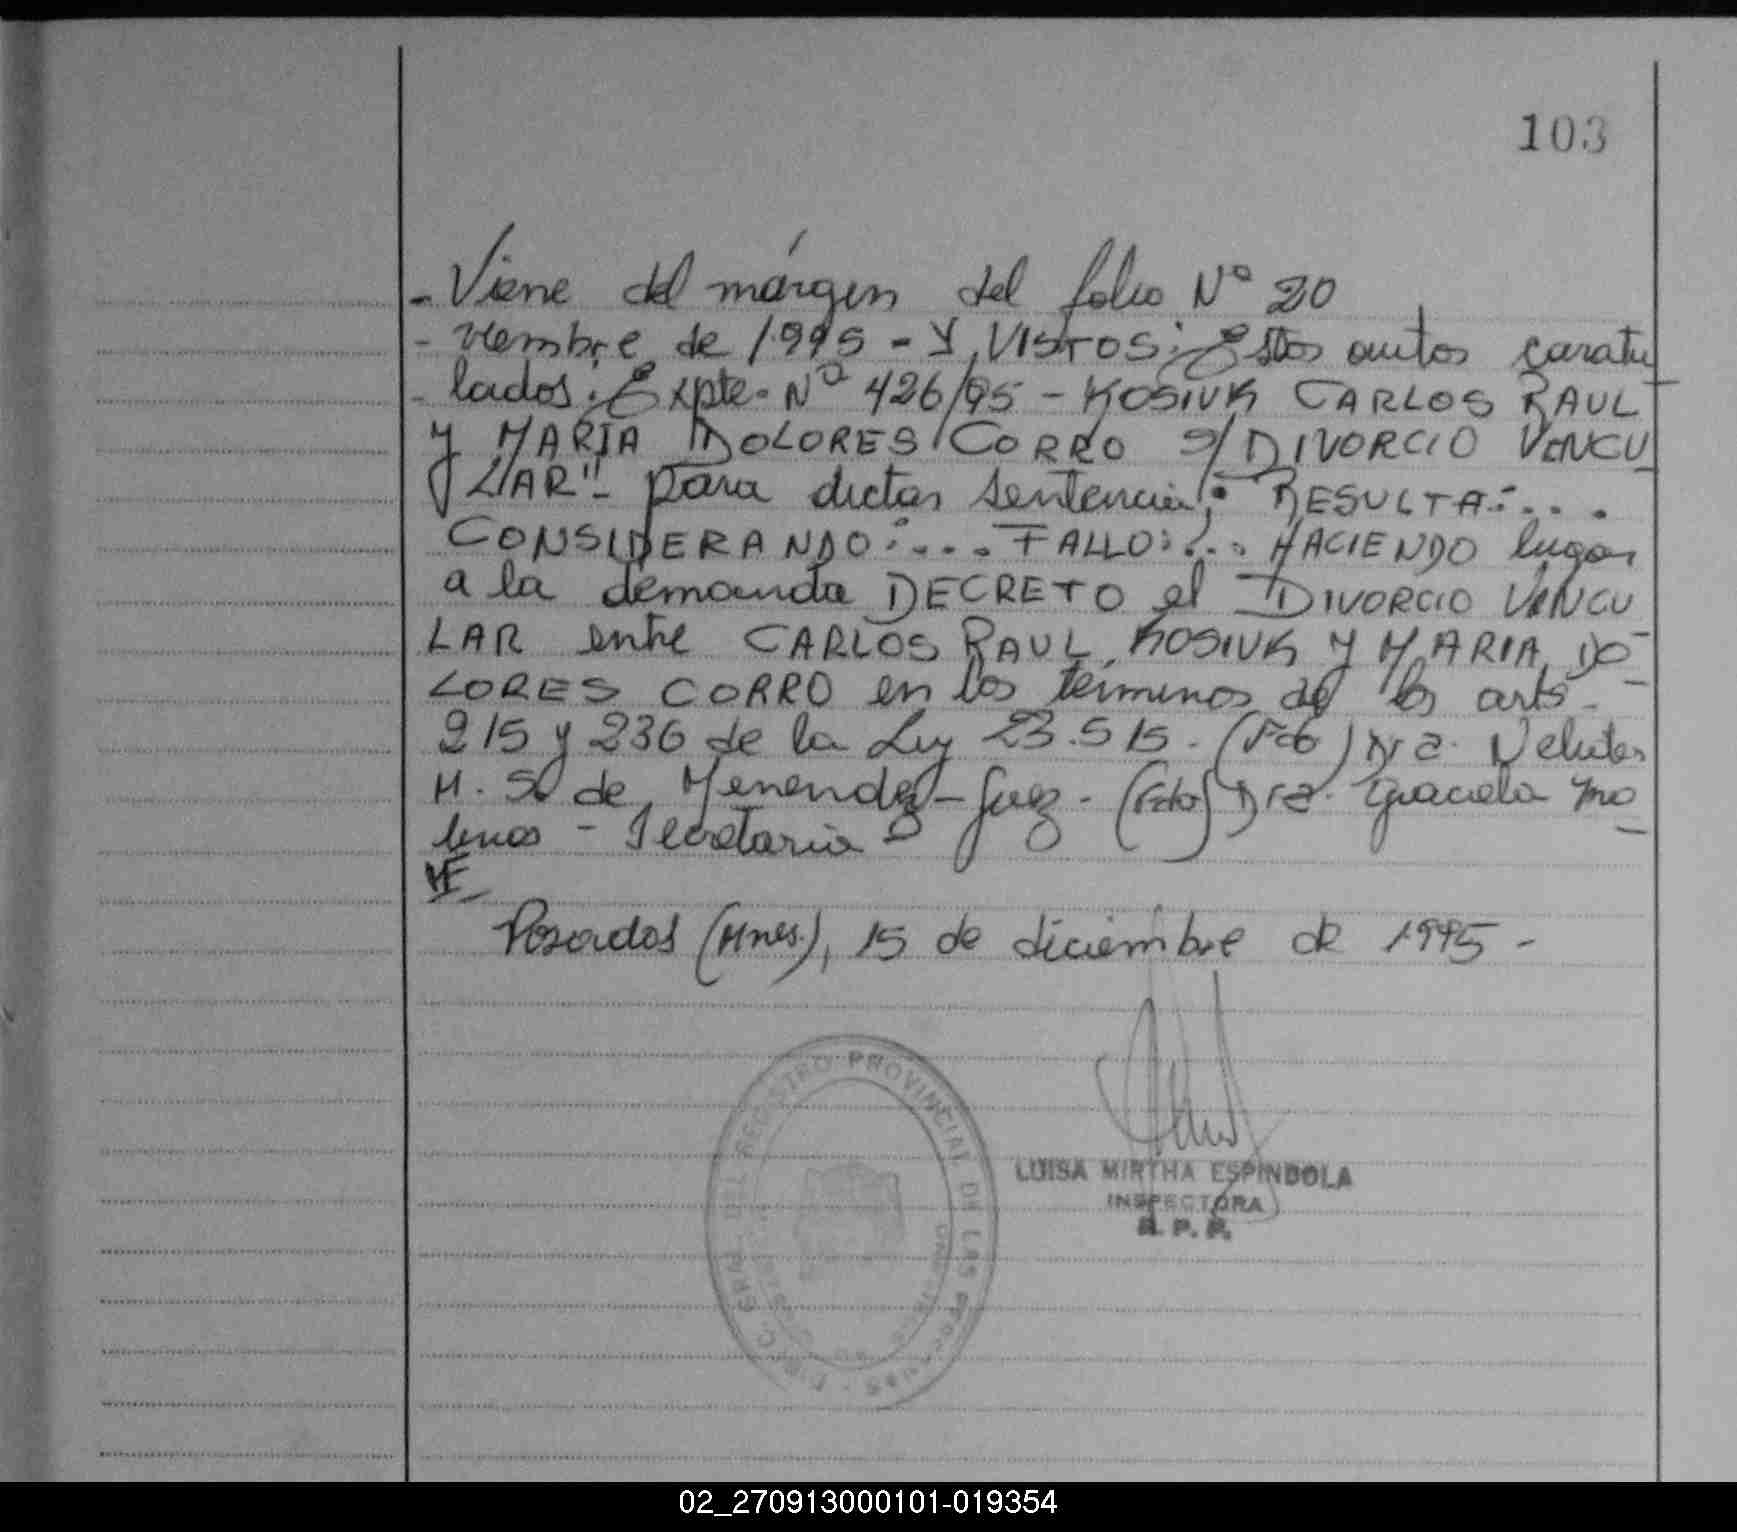 103
- Viene del márgen del folio Nº 20
- viembre de 1995 - Y, VISTOS: Estos autos caratu
- lados: Expte. Nº 426/95 - KOSIUK CARLOS RAUL
y MARIA DOLORES CORRO S/ DIVORCIO VINCU
LAR" - para dictar sentencia; RESULTA:...
CONSIDERANDO:... FALLO:... HACIENDO lugar
a la demanda DECRETO el DIVORCIO VINCU
LAR entre CARLOS RAUL KOSIUK y MARIA DO-
LORES CORRO en los terminos de los arts-
215 y 236 de la Ley 23.515. (Fdo) Dra.
M. S. de Menendez - Juez - (Fdo) Dra. Graciela Mo
linas - Secretaria -
Posadas (Mnes.), 15 de diciembre de 1995 -
REGISTRO PROVINCIAL DE LAS PERSONAS
LUISA MIRTHA ESPINDOLA
INSPECTORA
R. P. P.
02_270913000101-019354